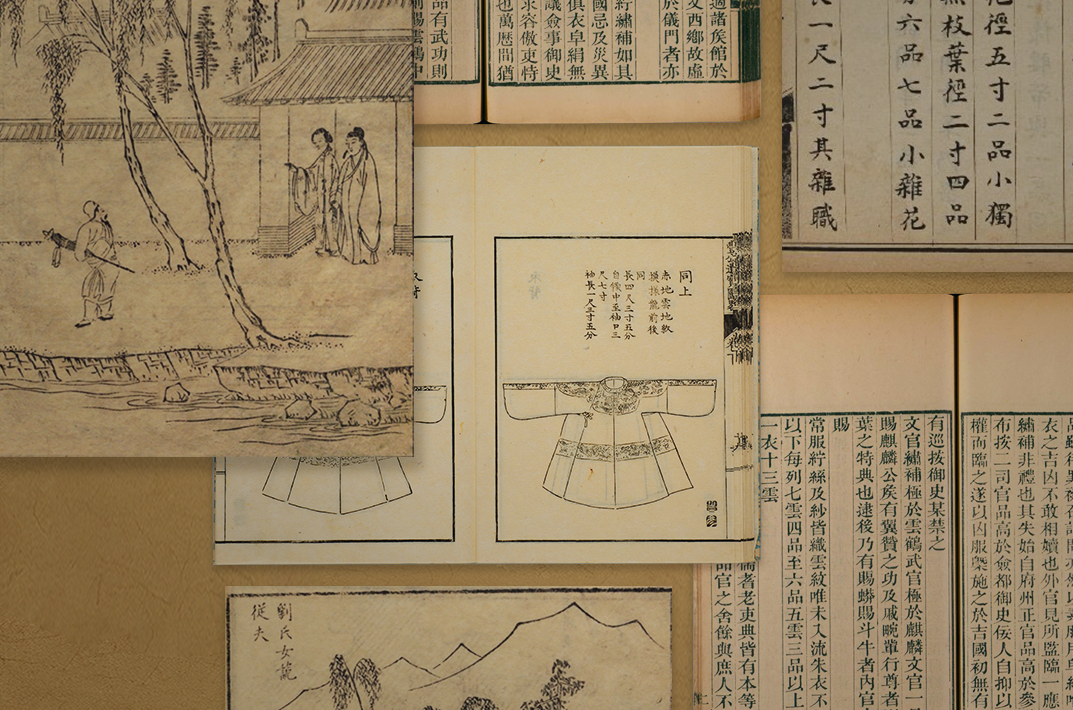 適諸矦館於
文西鄉故虛
於儀門者亦
紵繡補如其
國忌及災異
俱衣阜絹無
議僉事御史
求容傲吏恃
也萬歷間猶
品有武功則
賜雲鶴中
徑五寸二品小獨
枝葉徑二寸四品
六品七品小雜花
長一尺二寸其雜職
同上
赤地雲地紋
模樣龍前後
同
長四尺三寸五分
自領中至袖口三
尺七寸
袖長一尺三寸五分
衣之吉凶不敢相瀆也外官見所監臨一應
繡補非禮也其失始自府州正官品高於參
布按二司官品高於僉都御史佞人自抑以
權而臨之遂以凶服槩施之於吉國初無有
有巡按御史某禁之
文官繡補極於雲鶴武官極於麒麟文官一
賜麒麟公矦有翼贊之功及戚畹輩行尊者
葉之特典也逮後乃有賜蟒賜斗牛者內官
賜
常服紵絲及紗皆織雲紋唯未入流朱衣不
以下每列七雲四品至六品五雲三品以上
一衣十三雲
儒者老吏典皆有本等
官之舍餘與庶人不
劉氏女
從夫